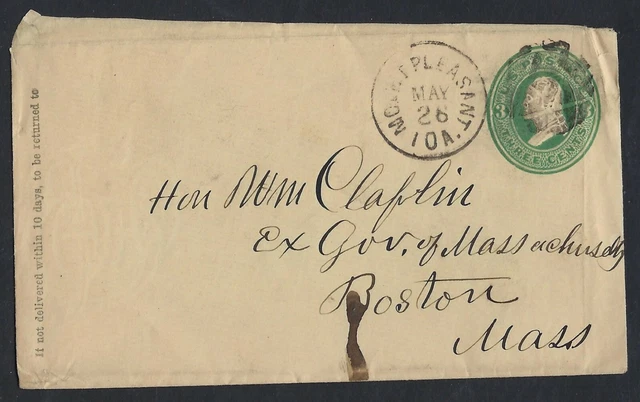 If not delivered within 10 days, to be returned to
MOUNT PLEASANT.
MAY
28
IOA
U.S. POSTAGE
3
THREE CENTS
Hon Wm Claflin
Ex Gov. of Massachusetts
Boston
Mass